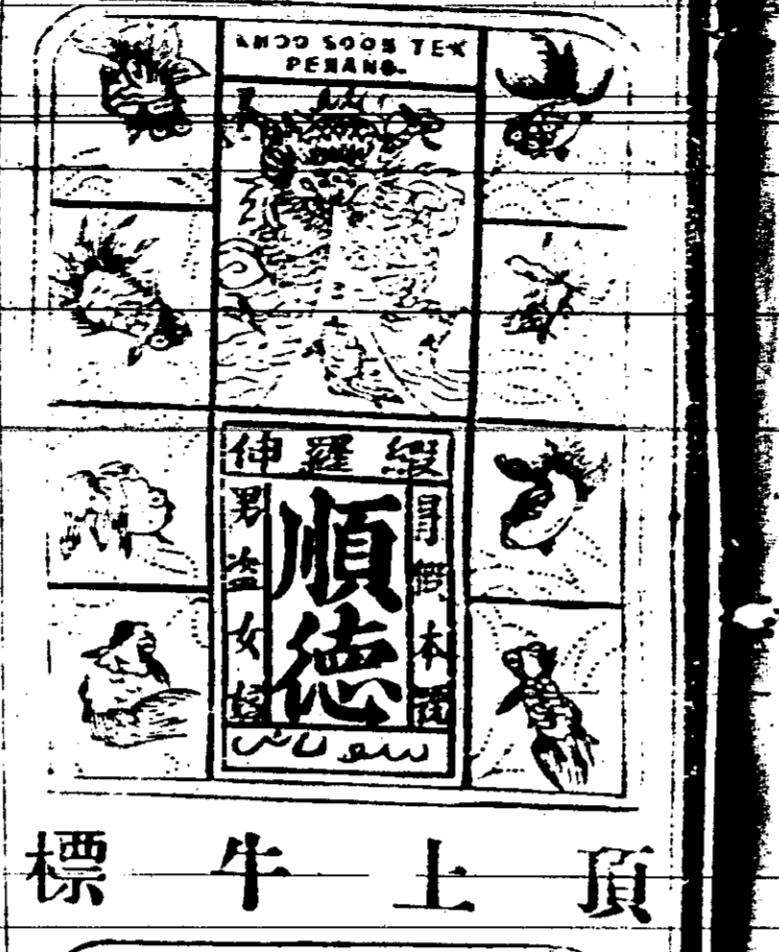 KHOO SOON TEK
PENANG.
緞羅伸
冒假本號
順德
男盜女娼
頂上牛標